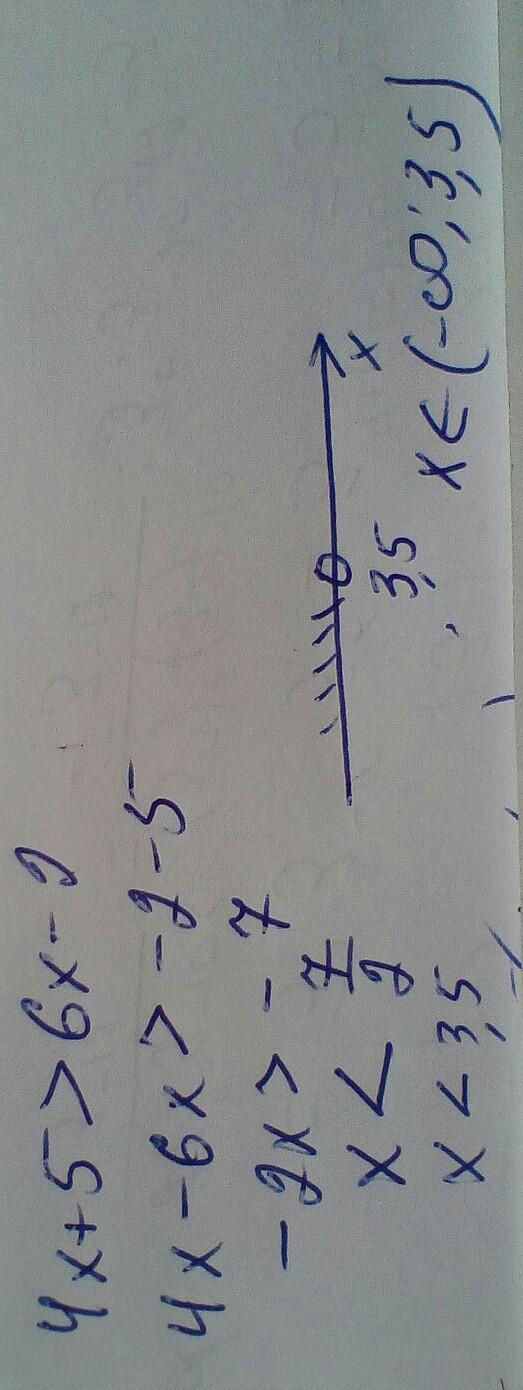 4x+5>6x-2
4x-6x>-2-5
-2x>-7
x<7/2
x<3,5
3,5
x
x∈(-∞;3,5)